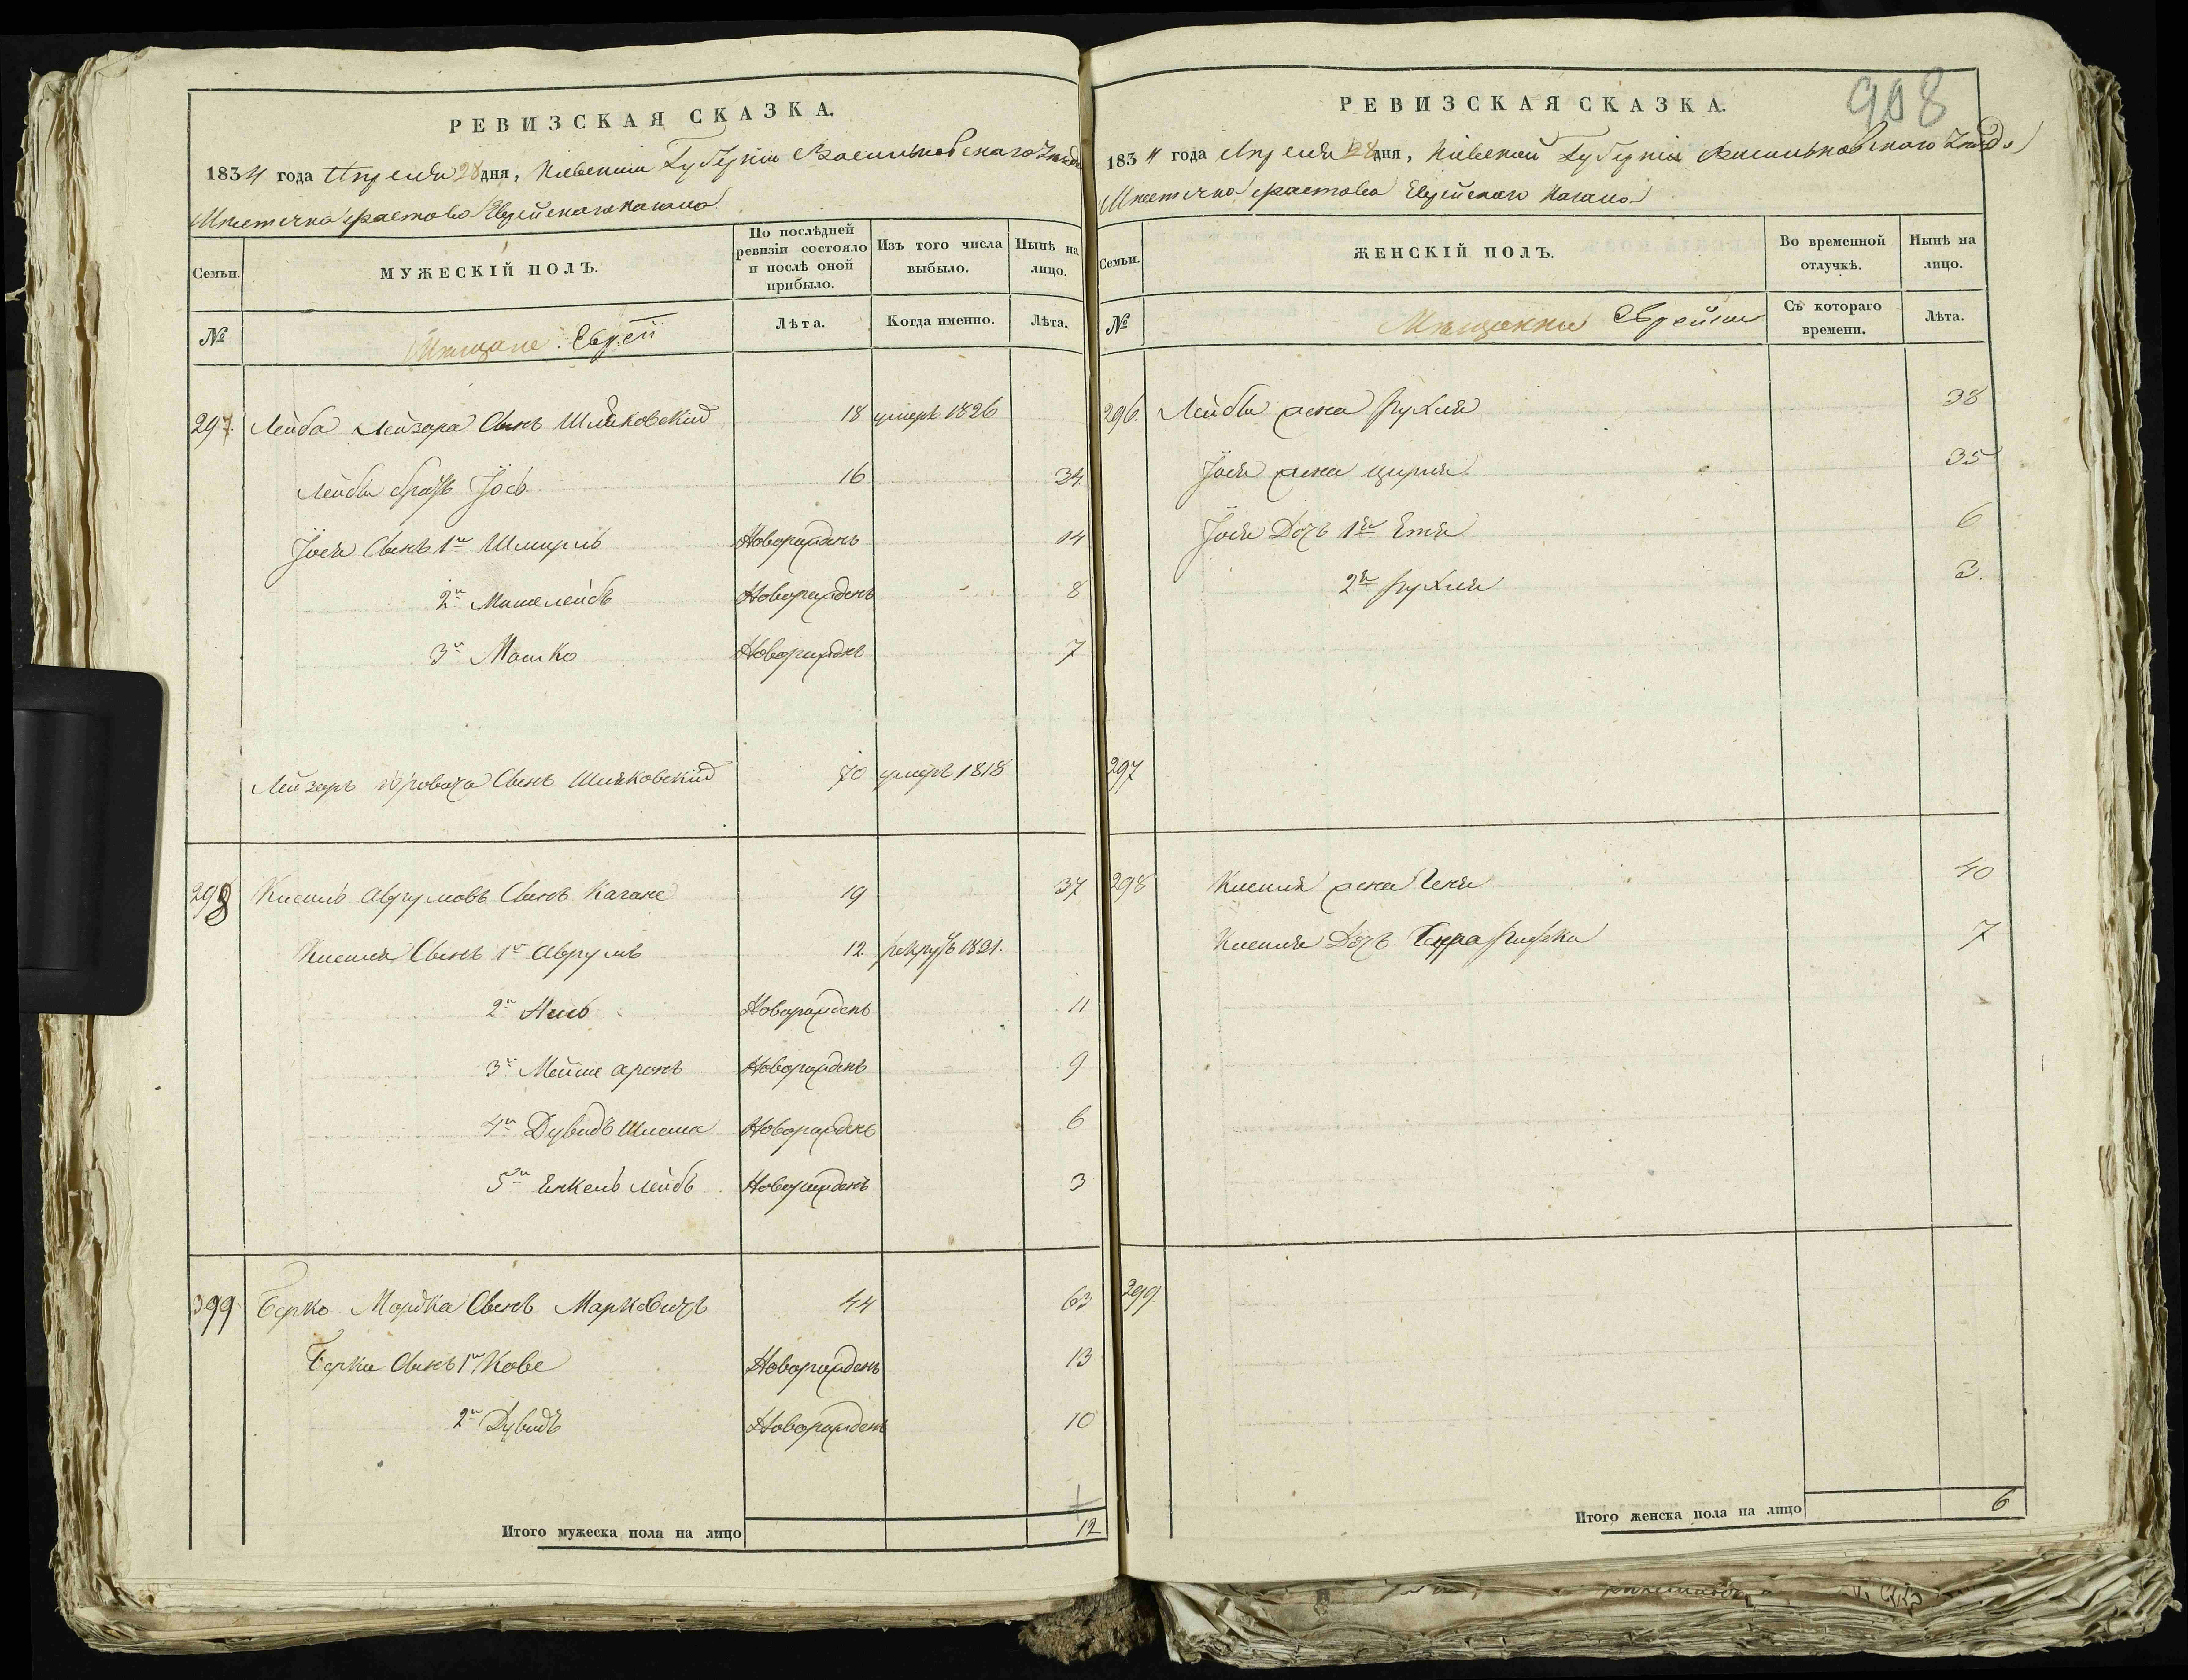 РЕВИЗСКАЯ СКАЗКА.
1834 года Апреля 28 дня, Кіевской Губерніи Васильковскаго Уезда
Местечка Фастова Еврейскаго Кагала
Семьи. МУЖЕСКІЙ ПОЛЪ. По послѣдней ревизіи состояло и послѣ оной прибыло. Изъ того числа выбыло. Нынѣ на лицо.
№ Мещане Евреи Лѣта. Когда именно. Лѣта.
297 Лейба Лейзора Сынъ Шляховскій 18 умеръ 1826
Лейбы братъ Іось 16 34
Іося Сынъ 1й Шмирль Новорожденъ 14
2й Мошелейбъ Новорожденъ 8
3й Мошко Новорожденъ 7
Лейзоръ Сынъ Шляховскій 70 умеръ 1818
298 Кисиль Аврумовъ Сынъ Кагане 19 37
Кисиля Сынъ 1й Аврумъ 12 рекрутъ 1831.
2й Новорожденъ 11
3й Мейше аронъ Новорожденъ 9
4й Дувидъ Шлема Новорожденъ 6
5й Енкель лейбъ Новорожденъ 3
399 Берко Мордка Сынъ Марковичъ 44 63
Берки Сынъ 1й Кове Новорожденъ 13
2й Дувидъ Новорожденъ 10
Итого мужеска пола на лицо 12
908
РЕВИЗСКАЯ СКАЗКА.
1834 года Апреля 28 дня, Кіевской Губерніи Васильковскаго Уезда
Местечка Фастова Еврейскаго Кагала
Семьи. ЖЕНСКІЙ ПОЛЪ. Во временной отлучкѣ. Нынѣ на лицо.
№ Мещанки Еврейки Съ котораго времени. Лѣта.
296. Лейбы жена Рухля 38
Іося жена Цирля 35
Іося Дочь 1я Етя 6
2я Рухля 3.
297
298 Кисиля жена Геня 40
Кисиля Дочь Ривка 7
299
Итого женска пола на лицо 6